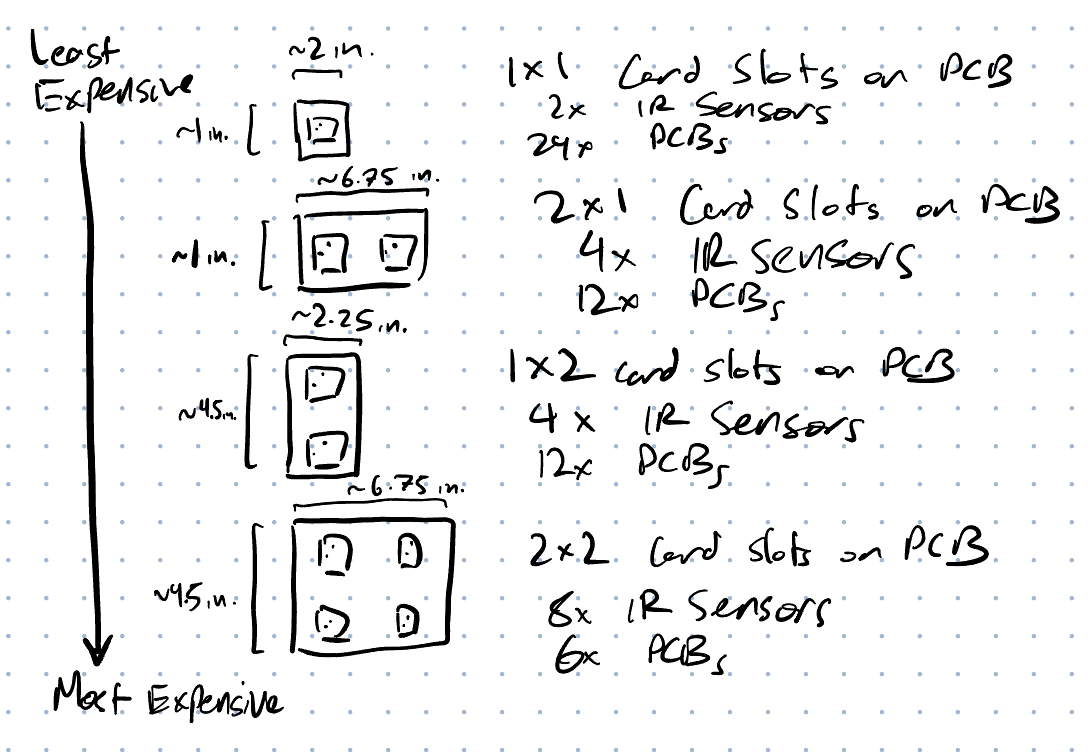 Least
Expensive
~2 in.
~1 in.
1x1 Card Slots on PCB
2x IR Sensors
24x PCBs
~6.75 in.
~1 in.
2x1 Card Slots on PCB
4x IR Sensors
12x PCBs
~2.25 in.
~4.5 in.
1x2 card slots on PCB
4x IR Sensors
12x PCBs
~6.75 in.
~4.5 in.
2x2 Card slots on PCB
8x IR Sensors
6x PCBs
Most Expensive